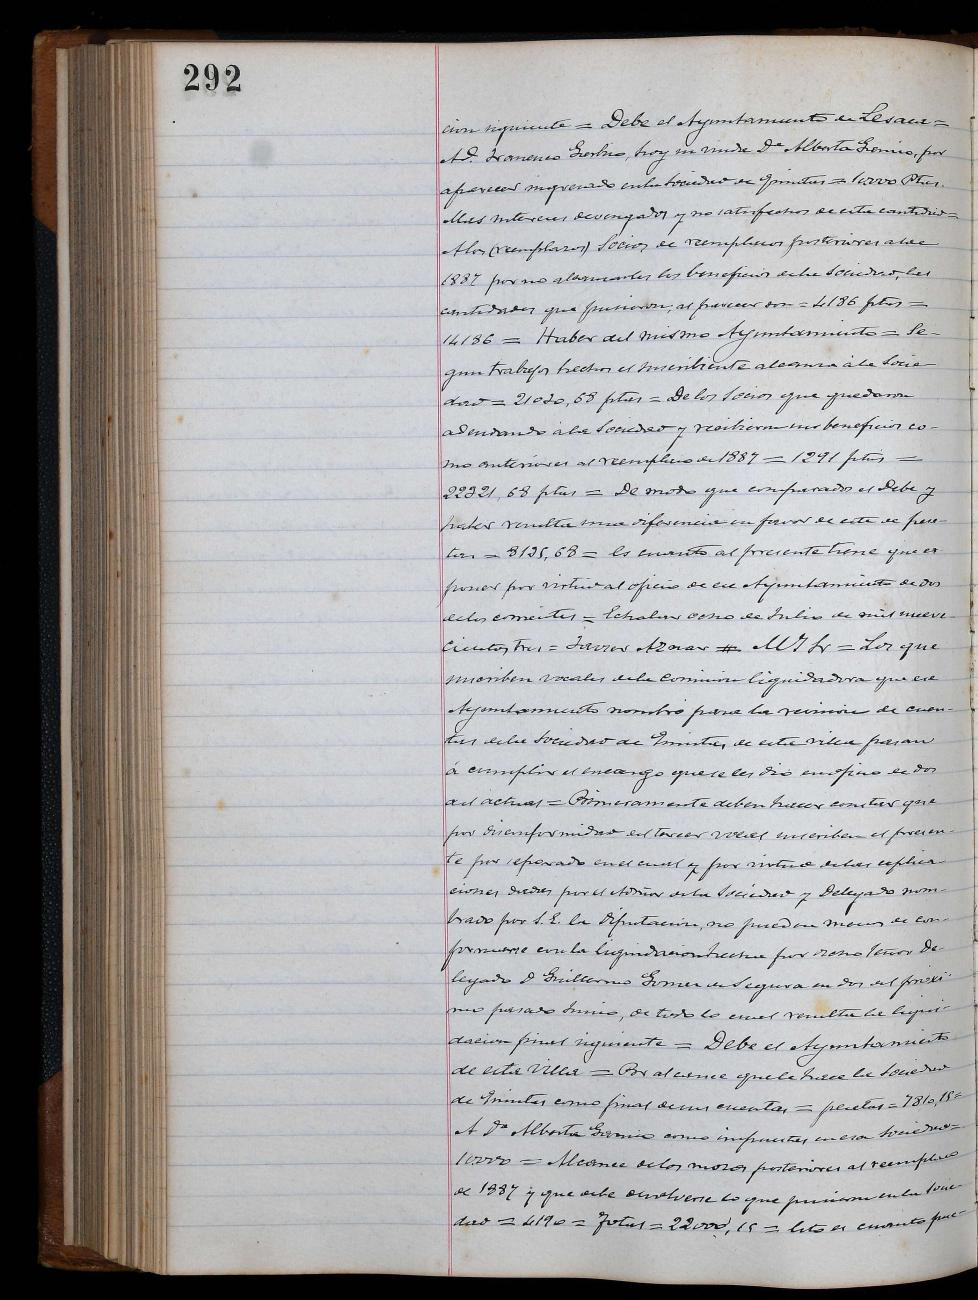 292
cion siguiente = Debe el Ayuntamiento de Lesaca =
A D. Francisco hoy su viuda Dª Alberta por
aparecer ingresado en la Sociedad de Quintas = 10000 Ptas.
Mas intereses devengados y no satisfechos de esta cantidad =
A los (reemplazos) Socios de reemplazos posteriores al de
1887 por no alcanzarles los beneficios de la Sociedad, las
cantidades que pusieron, al parecer son = 4186 ptas =
14186 = Haber del mismo Ayuntamiento = Se-
gun trabajos hechos el suscribiente alcanza á la Socie-
dad = 21030,68 ptas = De los Socios que quedaron
adeudando á la Sociedad y recibieron sus beneficios co-
mo anteriores al reemplazo de 1887 = 1291 ptas =
22321,68 ptas = De modo que comparados el Debe y
haber resulta una diferencia en favor de este de pese-
tas = 8135,68 = Es cuanto al presente tiene que ex
poner por virtud al oficio de ese Ayuntamiento de dos
de los corrientes = Echalar ocho de Julio de mil nueve
cientos tres = Javier Aznar = M Y Sr = Los que
suscriben vocales de la comision liquidadora que ese
Ayuntamiento nombró para la revision de cuen-
tas de la Sociedad de Quintas de esta villa pasan
á cumplir el encargo que se les dio en oficio de dos
del actual = Primeramente deben hacer constar que
por disconformidad del tercer vocal suscriben el presen-
te por separado en el cual y por virtud de las esplica-
ciones dadas por el de la Sociedad y Delegado nom-
brado por S. E. la Diputacion, no pueden menos de con-
formarse con la liquidacion hecha por dicho Señor De-
legado D Guillermo Gomez de Segura en dos del próxi-
mo pasado Junio, de todo lo cual resulta la liqui-
dacion final siguiente = Debe el Ayuntamiento
de esta Villa = Por alcance que le hace la Sociedad
de Quintas como final de sus cuentas = pesetas = 7810,15 =
A Dª Alberta como impuestas en esa Sociedad =
10000 = Alcance de los mozos posteriores al reemplazo
de 1887 y que debe devolverse lo que pusieron en la Socie-
dad = 4190 = Total = 22000,15 = Esto es cuanto pue-